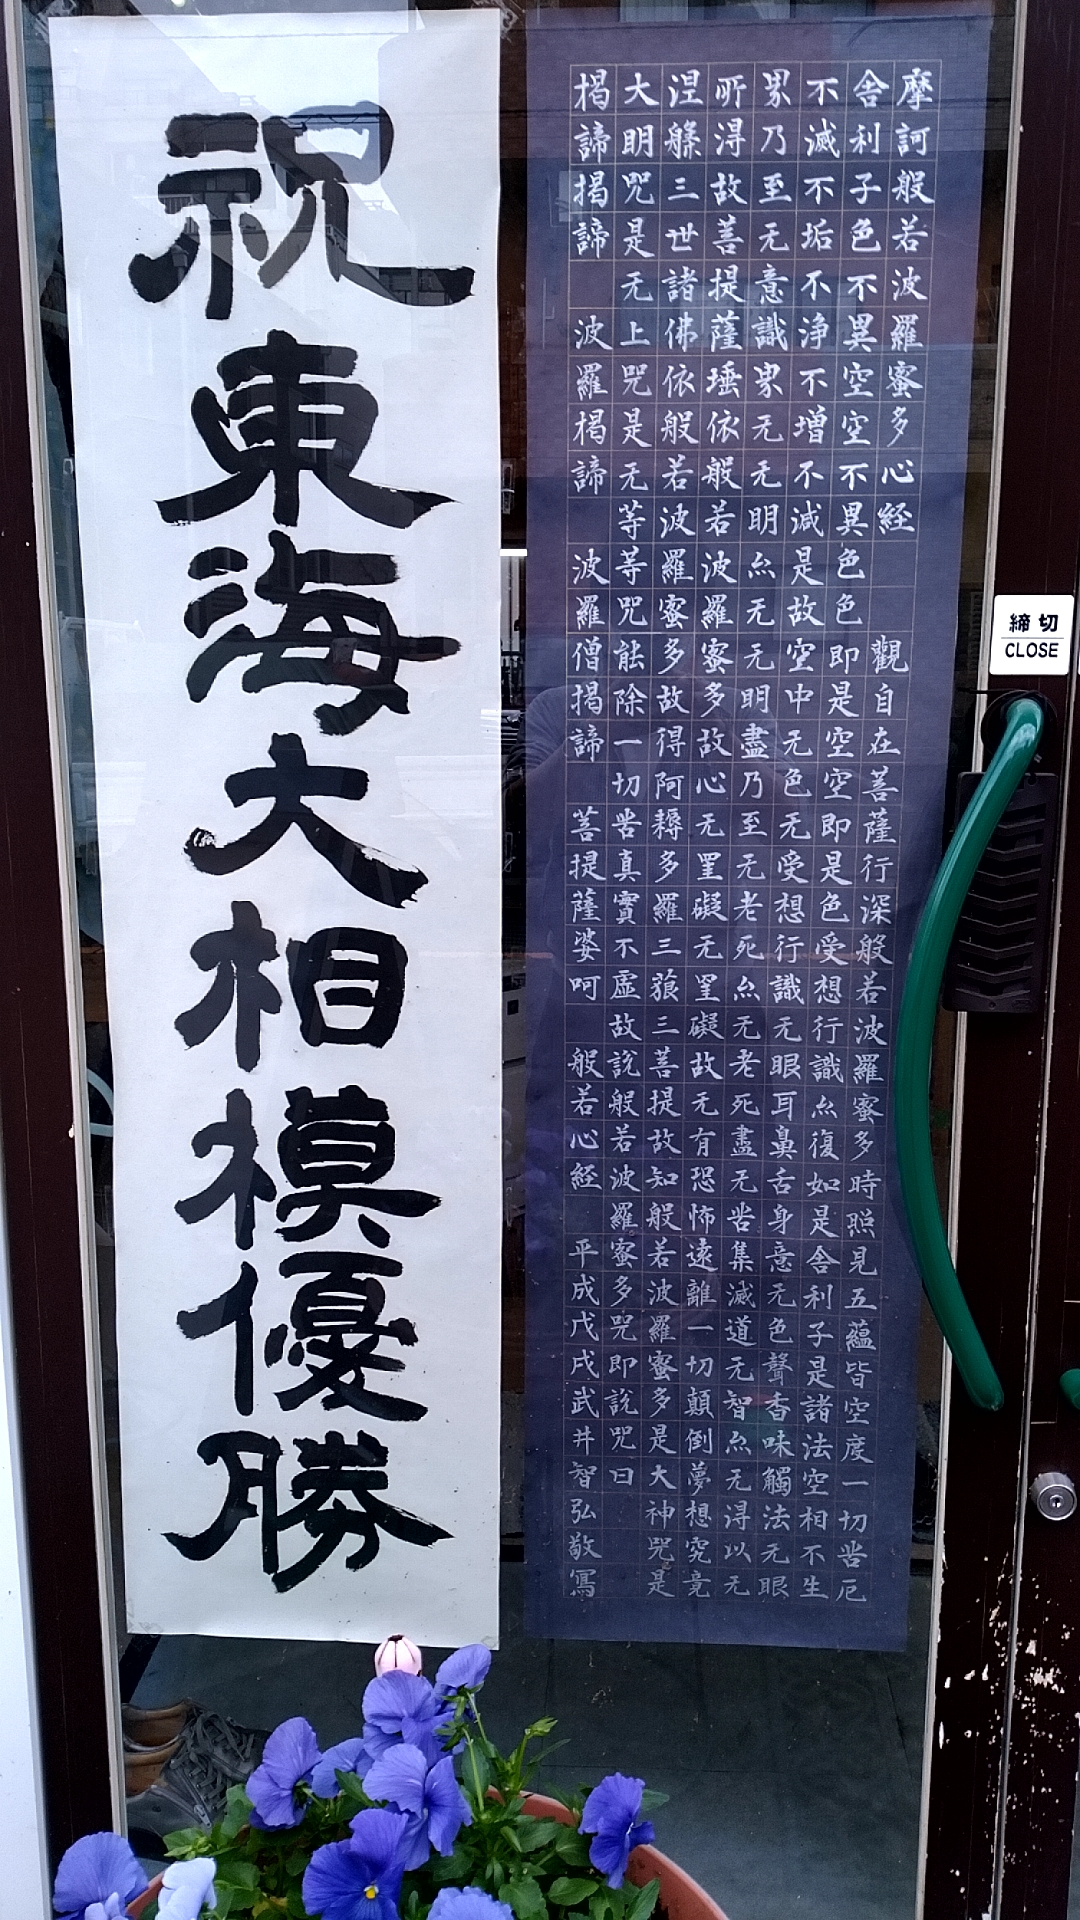 摩訶般若波羅蜜多心経 觀自在菩薩行深般若波羅蜜多時照見五蘊皆空度一切苦厄
舎利子色不異空空不異色色即是空空即是色受想行識亦復如是舎利子是諸法空相不生
不滅不垢不浄不増不減是故空中无色无受想行識无眼耳鼻舌身意无色聲香味觸法无眼
界乃至无意識界无无明亦无无明盡乃至无老死亦无老死盡无苦集滅道无智亦无得以无
所得故菩提薩埵依般若波羅蜜多故心无罣礙无罣礙故无有恐怖遠離一切顛倒夢想究竟
涅槃三世諸佛依般若波羅蜜多故得阿耨多羅三藐三菩提故知般若波羅蜜多是大神咒是
大明咒是无上咒是无等等咒能除一切苦真實不虚故説般若波羅蜜多咒即説咒曰
掲諦掲諦 波羅掲諦 波羅僧掲諦 菩提薩婆呵 般若心経 平成戊戌武井智弘敬寫
祝東海大相模優勝
締切
CLOSE